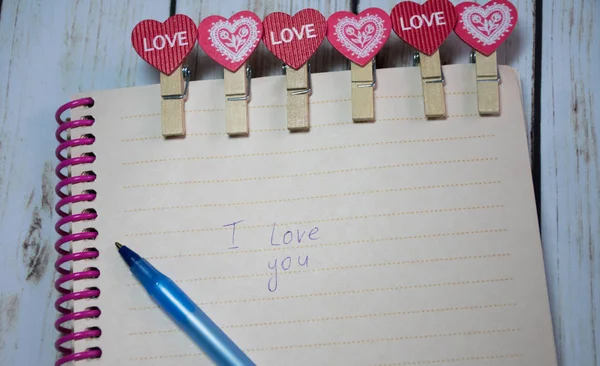 LOVE LOVE LOVE
I Love
you